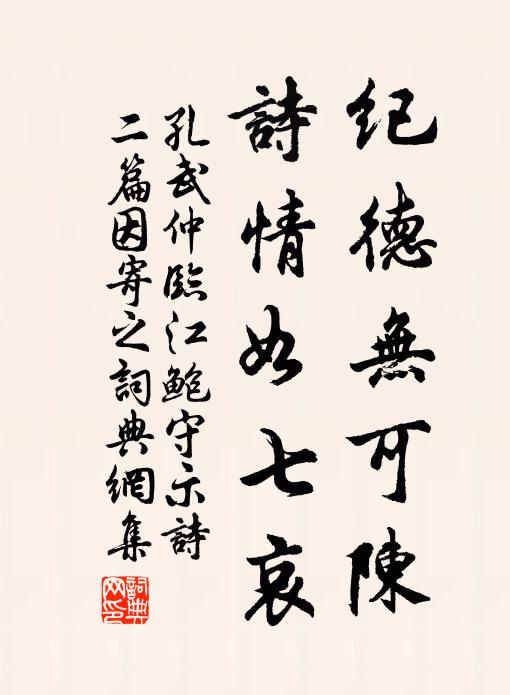 紀德無可陳
詩情如七哀
孔武仲臨江鮑守示詩
二篇因寄之詞典網集
詞典
网印